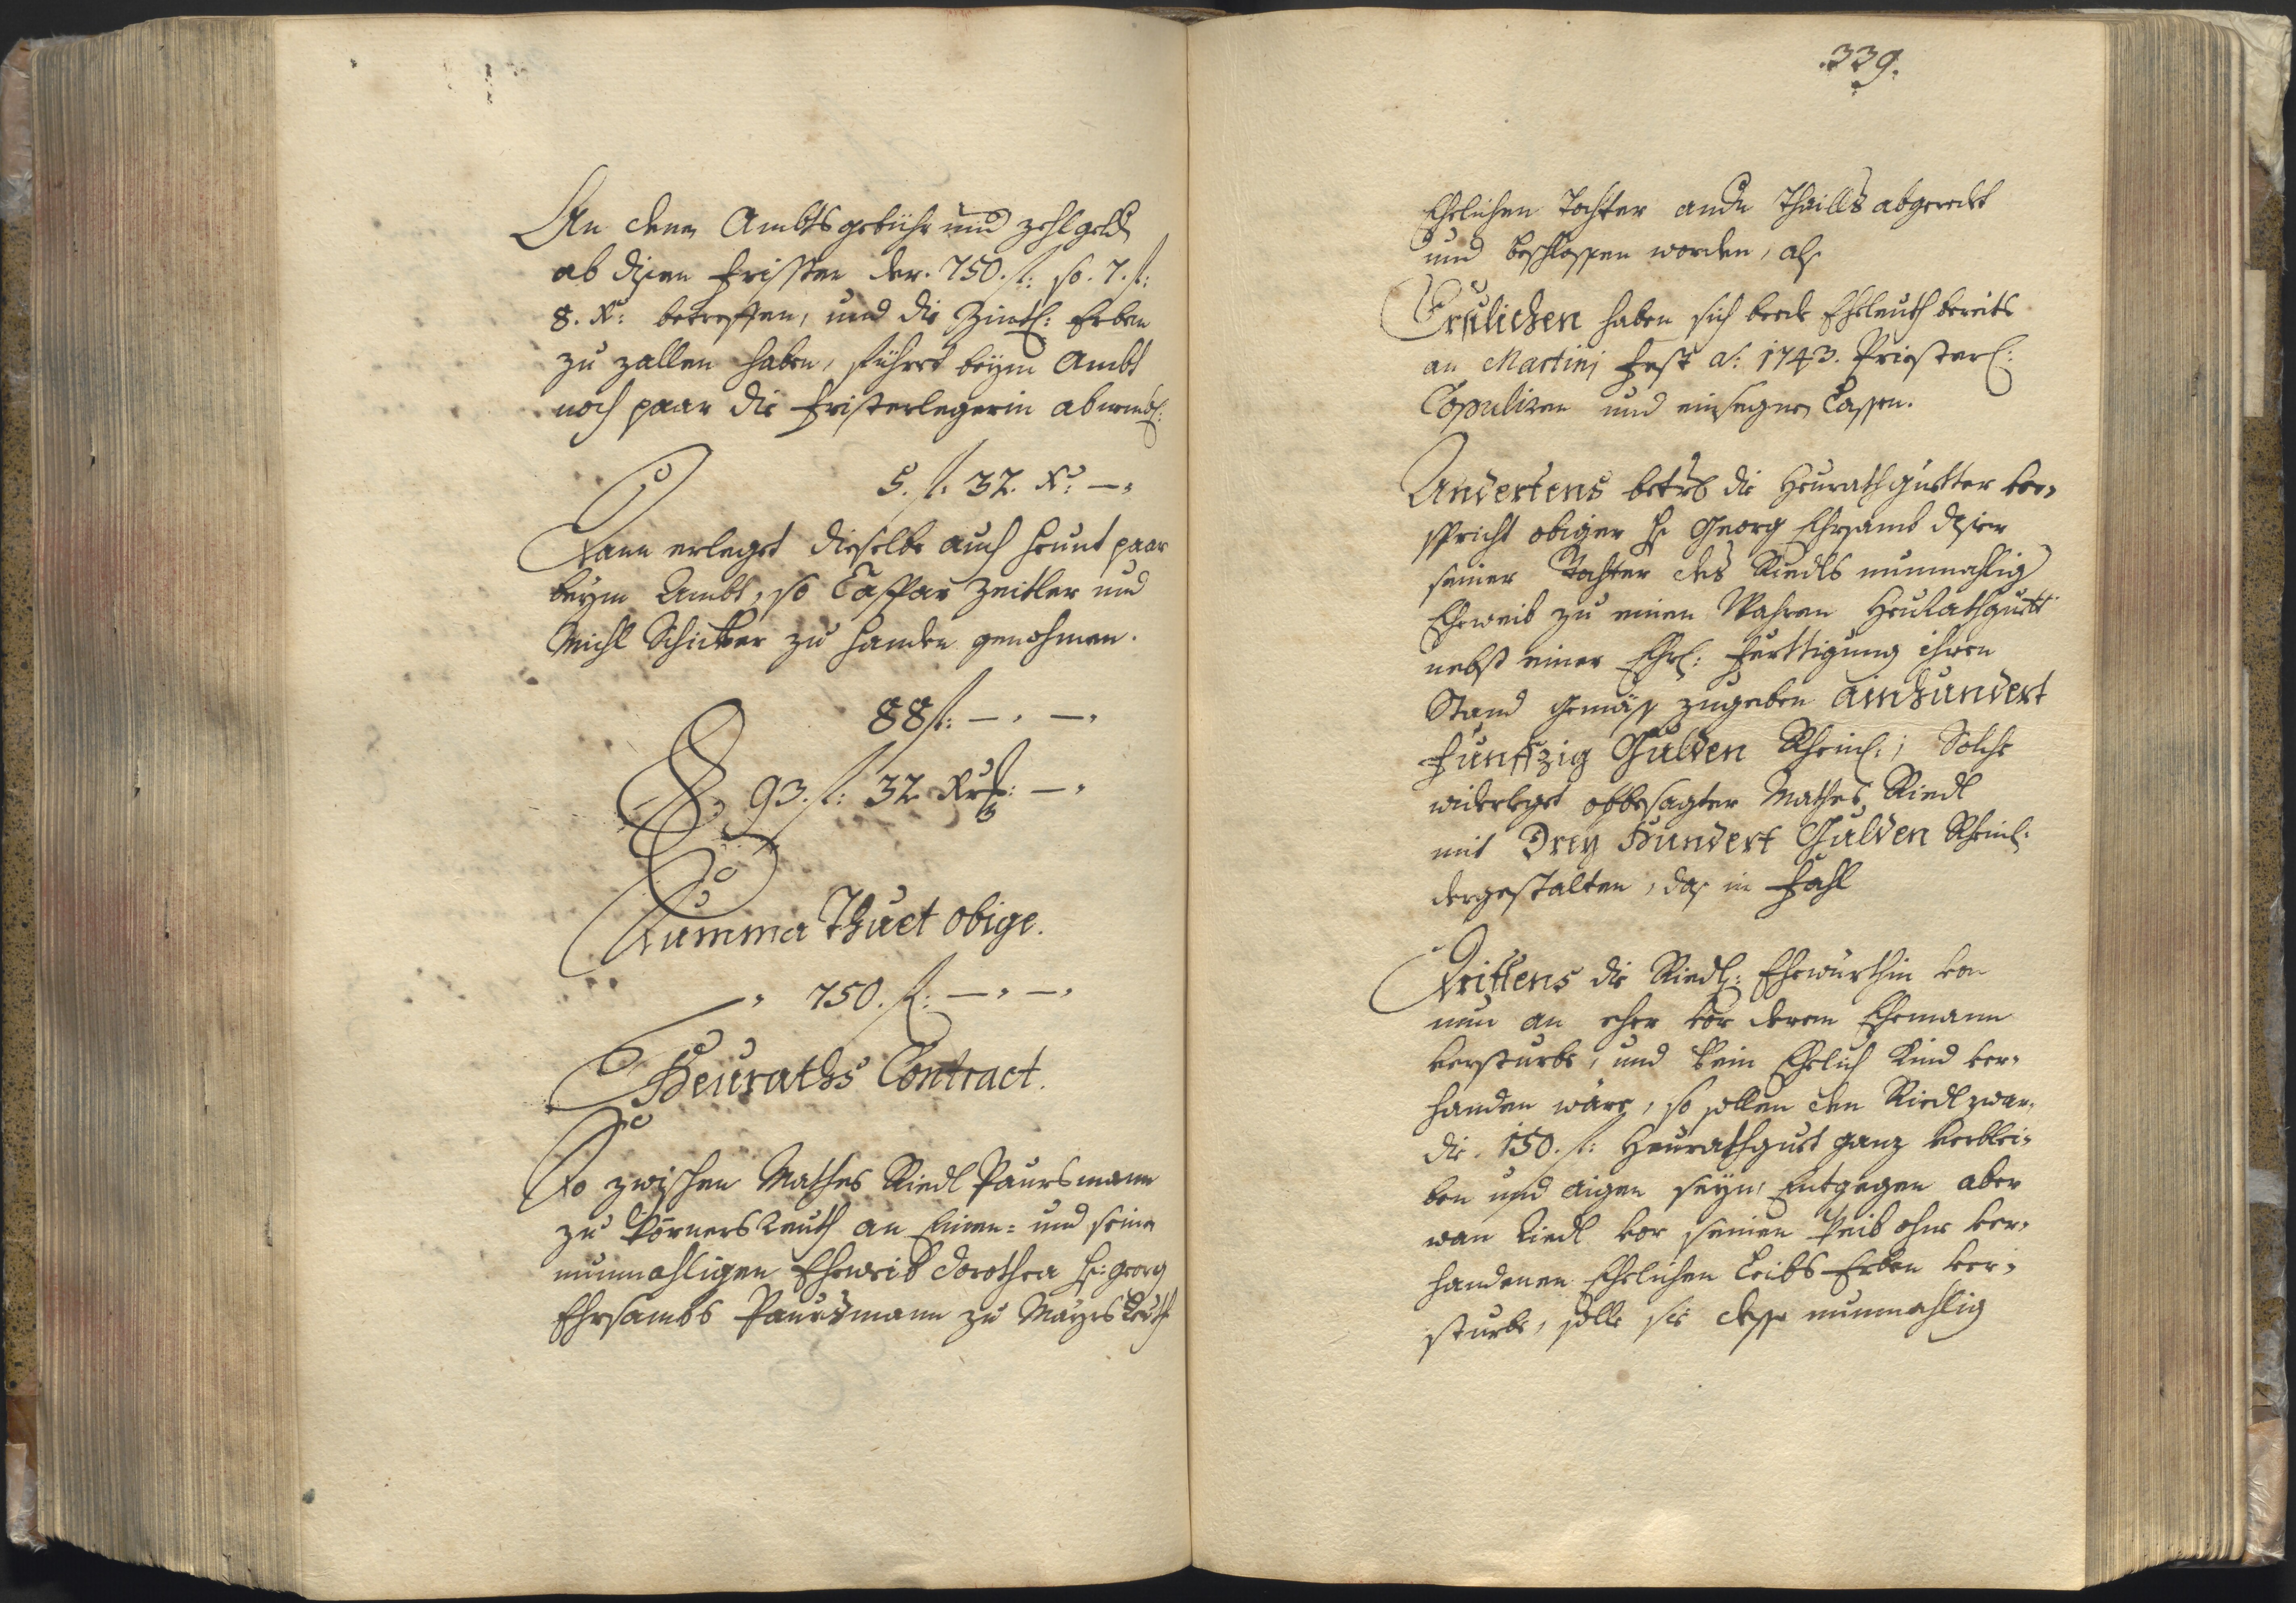 An denen Ambtsgebühr und Zehlgeld
ab disen fristen der 750. fl: so 7. fl:
8. Kr: betreffen, und die Zintl: Erben
zu zallen haben, führet beym Ambt
noch paar die fristerlegerin ab
5. fl: 32. Kr: —"
Dann erleget dieselbe auch heunt paar
beym Ambt, so Caspar Zeitler und
Michl Schicker zu handen genohmen.
88 fl: — " — "
93. fl: 32 Kr: — "
Summa Thuet obige.
" 750. fl: — " — "
Heuraths Contract.
So zwischen Mathes Riedl Paursmann
zu Körnersreuth an Einen- und seine
nunmahligen Eheweib Dorothea H: Georg
Ehrsambs Paursmann zu Mayersreuth
339.
Ehelichen Tochter andern Thaills abgeredet
und beschlossen worden, als
Erstlichen haben sich beede Eheleuth bereits
an Martini fest a: 1743. Priesterl:
Copuliren und einsegnen lassen.
Andertens betrf die Heurathgüetter ver-
spricht obiger H: Georg Ehrsamb diser
seiner Tochter des Riedls nunmahlig
Eheweib zu einen Wahren Heurathguett
nebst einer Ehrl: Ferttigung ihren
Stand gemäss zugeben ainhundert
Funffzig Gulden Rheinl:, Solche
widerleget obbesagter Mathes Riedl
mit Drey Hundert Gulden Rheinl:
dergestalten, das in Fahl
Drittens die Riedl: Ehewürthin von
nun an eher vor deren Ehemann
versturbe, und kein Ehelich Kind ver-
handen wäre, so sollen den Riedl zwar
die 150. fl: Heurathguet ganz verblei-
ben und aigen seyn, Entgegen aber
wan Riedl vor seinen Weib ohne ver-
handenen Ehelichen Leibs Erben ver-
sturbe, solle sie dessen nunmahlig